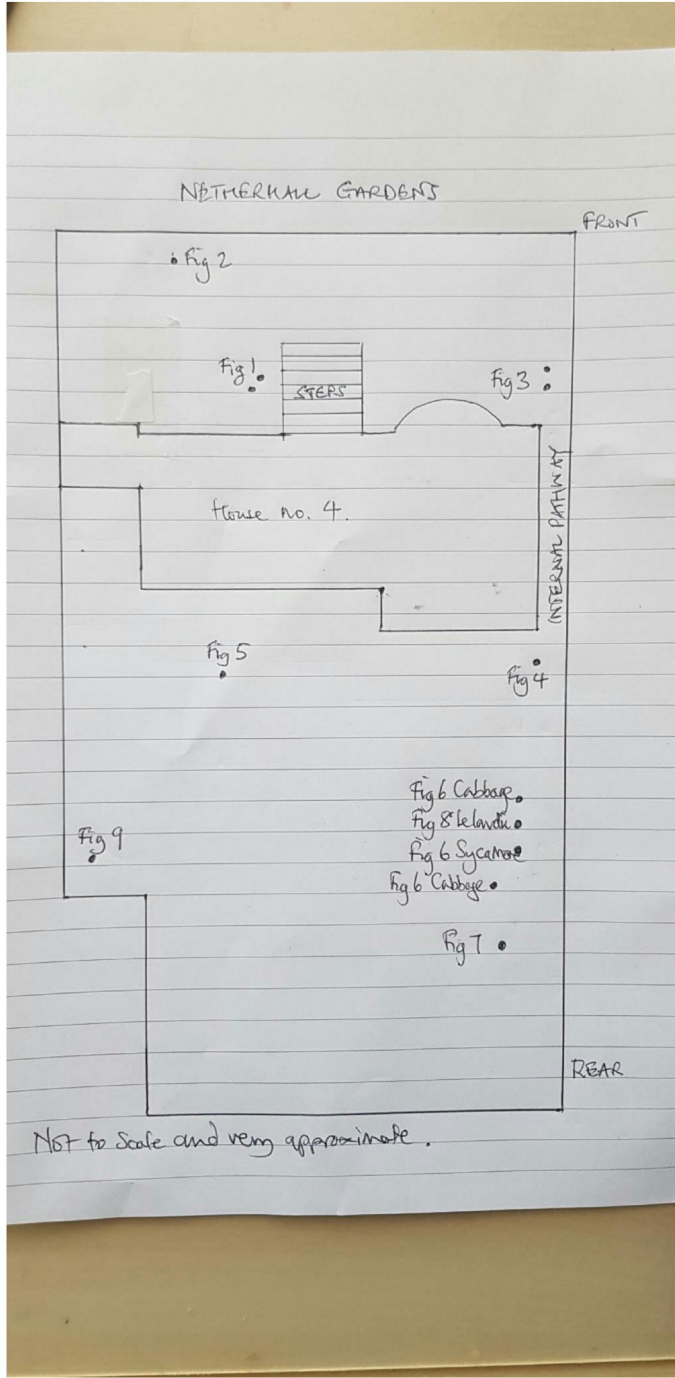 NETHERHALL GARDENS
FRONT
Fig 2
Fig 1
STEPS
Fig 3
INTERNAL PATHWAY
House no. 4.
Fig 5
Fig 4
Fig 6 Cabbage
Fig 8 Lelandii
Fig 6 Sycamore
Fig 6 Cabbage
Fig 9
Fig 7
REAR
Not to Scale and very approximate.